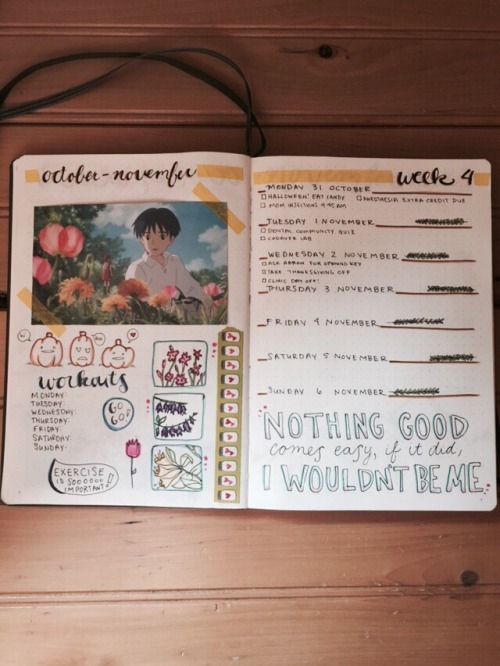 october - november
hi
boo
workouts
MONDAY:
TUESDAY:
WEDNESDAY
THURSDAY:
FRIDAY:
SATURDAY:
SUNDAY:
GO
GO!
EXERCISE
IS SOOOOOO
IMPORTANT!
week 4
MONDAY 31 OCTOBER
HALLOWEEN! EAT CANDY
ANESTHESIA EXTRA CREDIT DUE
MDM INJECTIONS 9:45 AM
TUESDAY 1 NOVEMBER
DENTAL COMMUNITY QUIZ
CADAVER LAB
WEDNESDAY 2 NOVEMBER
ASK AARON FOR OPENING KEY
TAKE THANKSGIVING OFF
CLINIC DAY OFF!
THURSDAY 3 NOVEMBER
FRIDAY 4 NOVEMBER
SATURDAY 5 NOVEMBER
SUNDAY 6 NOVEMBER
NOTHING GOOD
comes easy, if it did,
I WOULDN'T BE ME.